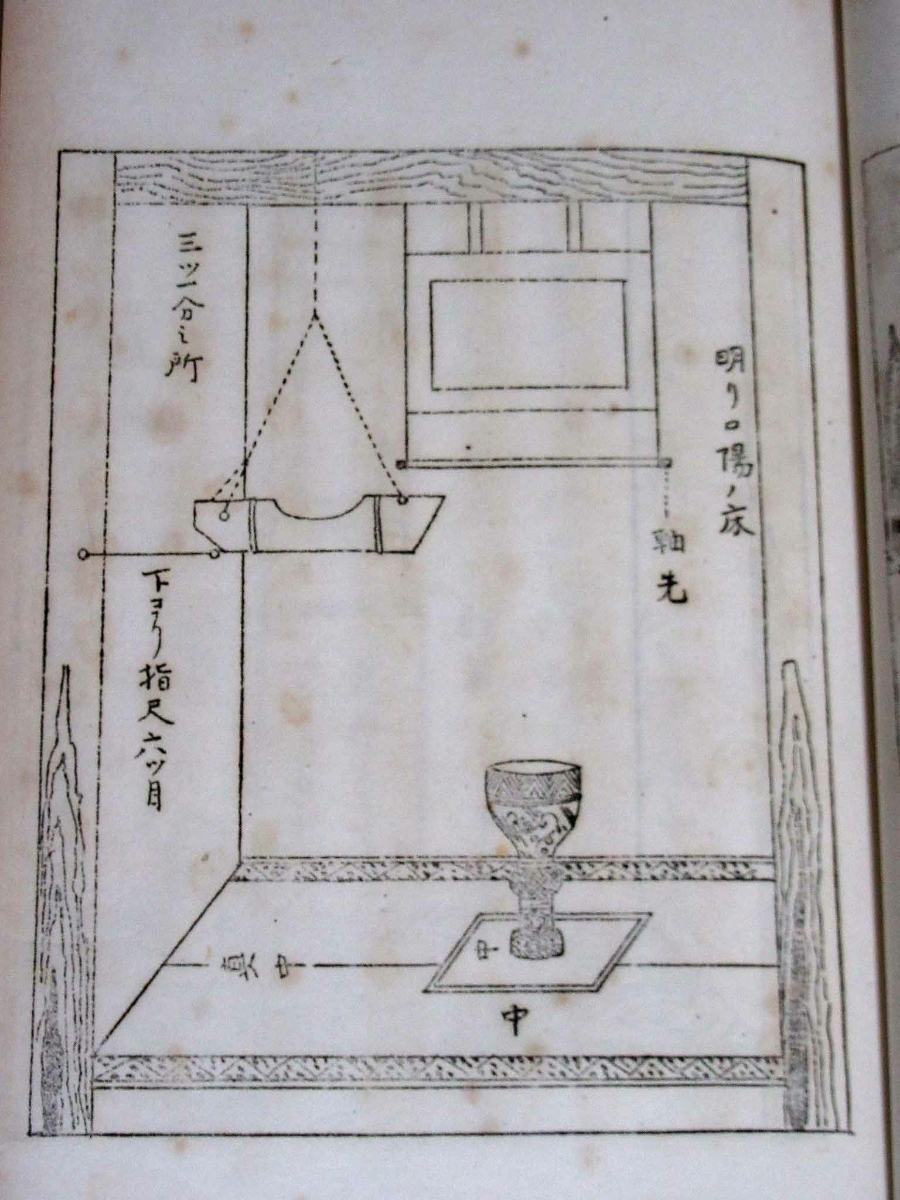 明リ口陽ノ床
軸先
三ツ一分之所
下ヨリ指尺六ツ目
中
真中
中